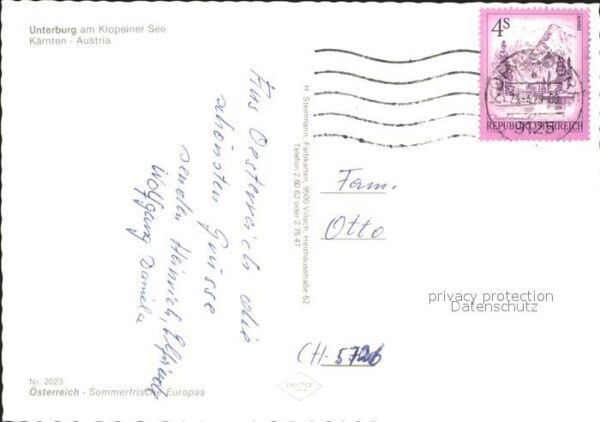 Unterburg am Klopeiner See
Kärnten - Austria
Aus Oesterreich die
schönsten Grüsse
senden Heinrich, Elfriede
Wolfgang Daniela
H. Steinmann, Farbkarten, 9500 Villach, Heizhausstraße 52
Telefon 2 60 62 oder 2 75 47
4S
REPUBLIK ÖSTERREICH
9125
Fam.
Otto
privacy protection
Datenschutz
CH-5726
Nr. 2023
Österreich - Sommerfrische Europas